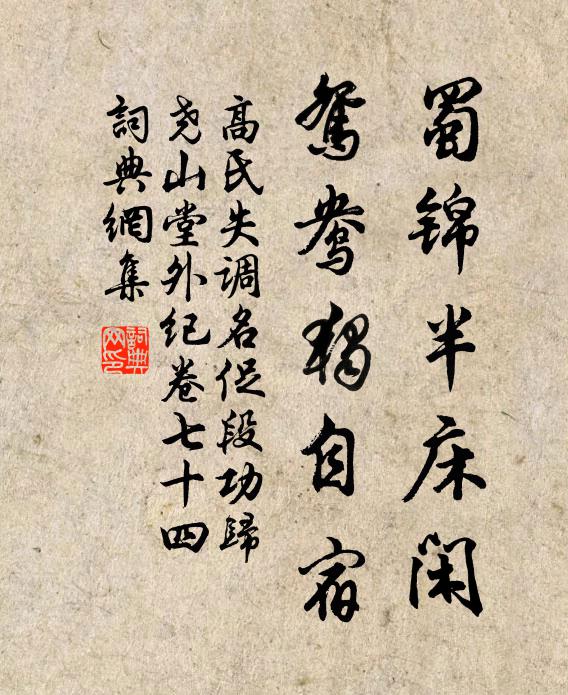 蜀锦半床闲
鸳鸯独自宿
高氏失调名促段功歸
尧山堂外纪卷七十四
詞典網集
詞典網印